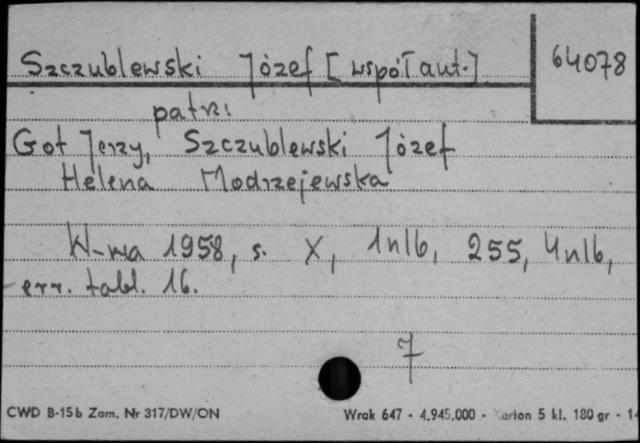 Szczublewski Józef [współaut.] 64078
patrz:
Got Jerzy, Szczublewski Józef
Helena Modrzejewska
W-wa 1958, s. X, 1nlb, 255, 4nlb,
err. tabl. 16.
7
CWD B-15b Zam. Nr 317/DW/ON Wrak 647 - 4.945.000 - arton 5 kl. 180 gr - 14